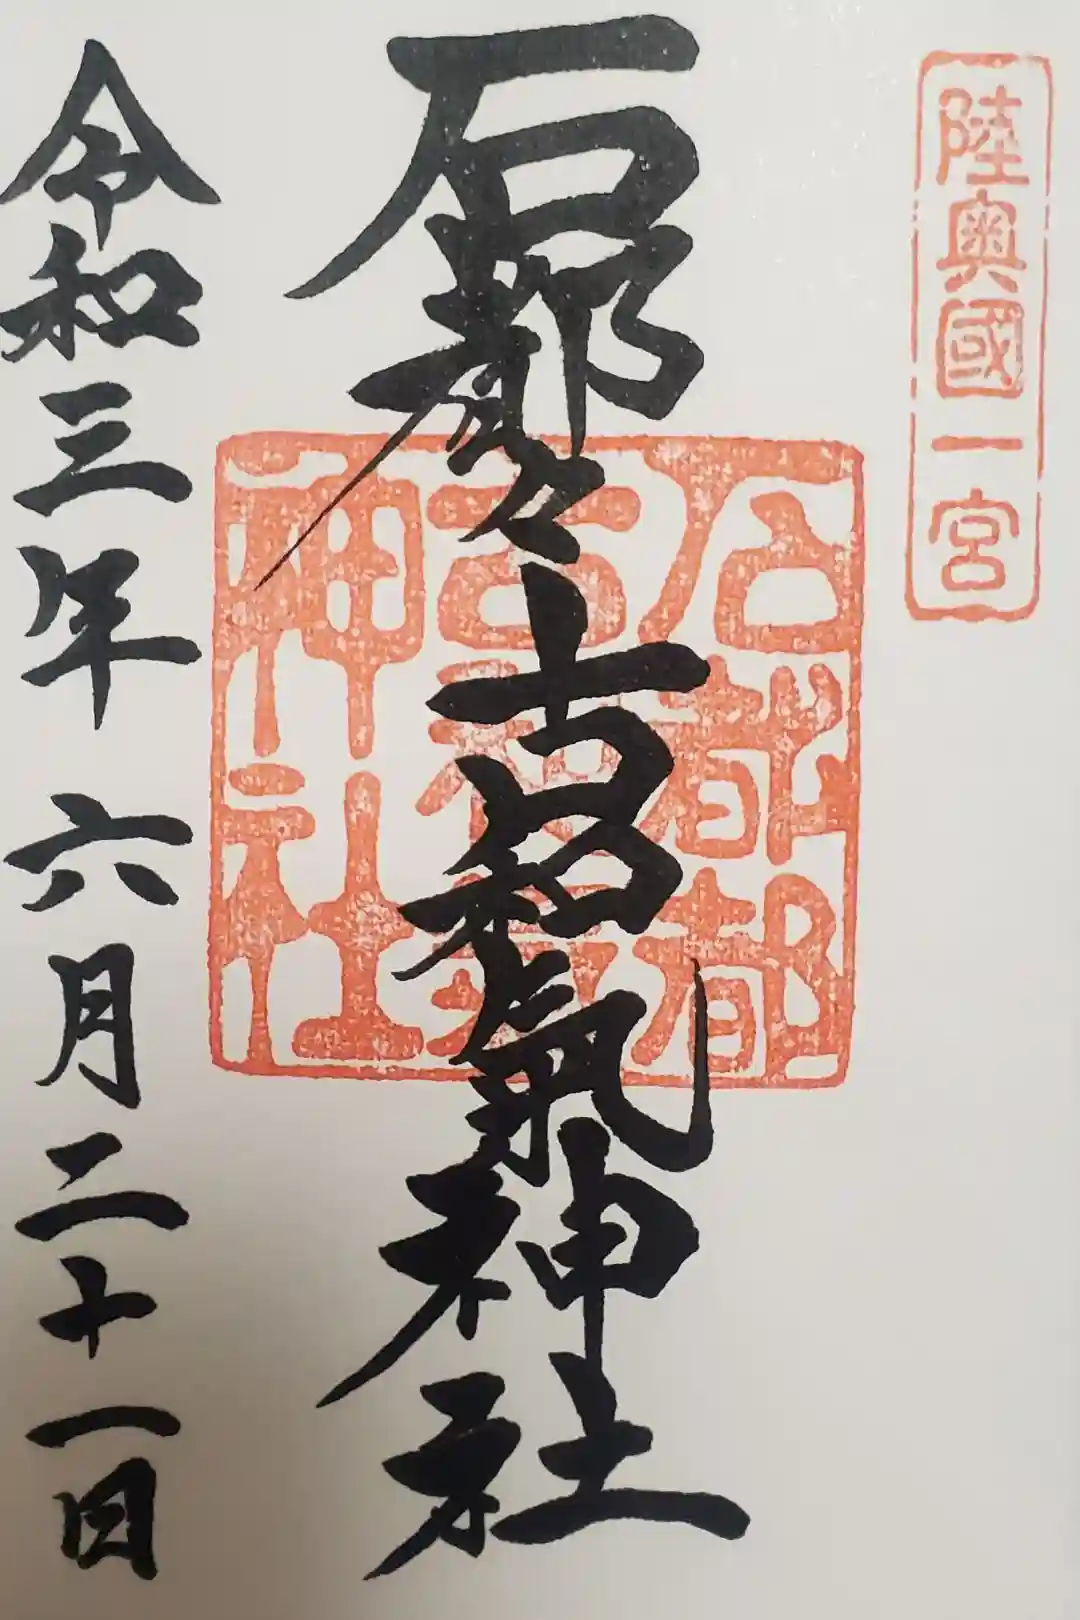 陸奥國一宮
石都々古和氣神社
石都都古和氣神社
令和三年六月二十一日